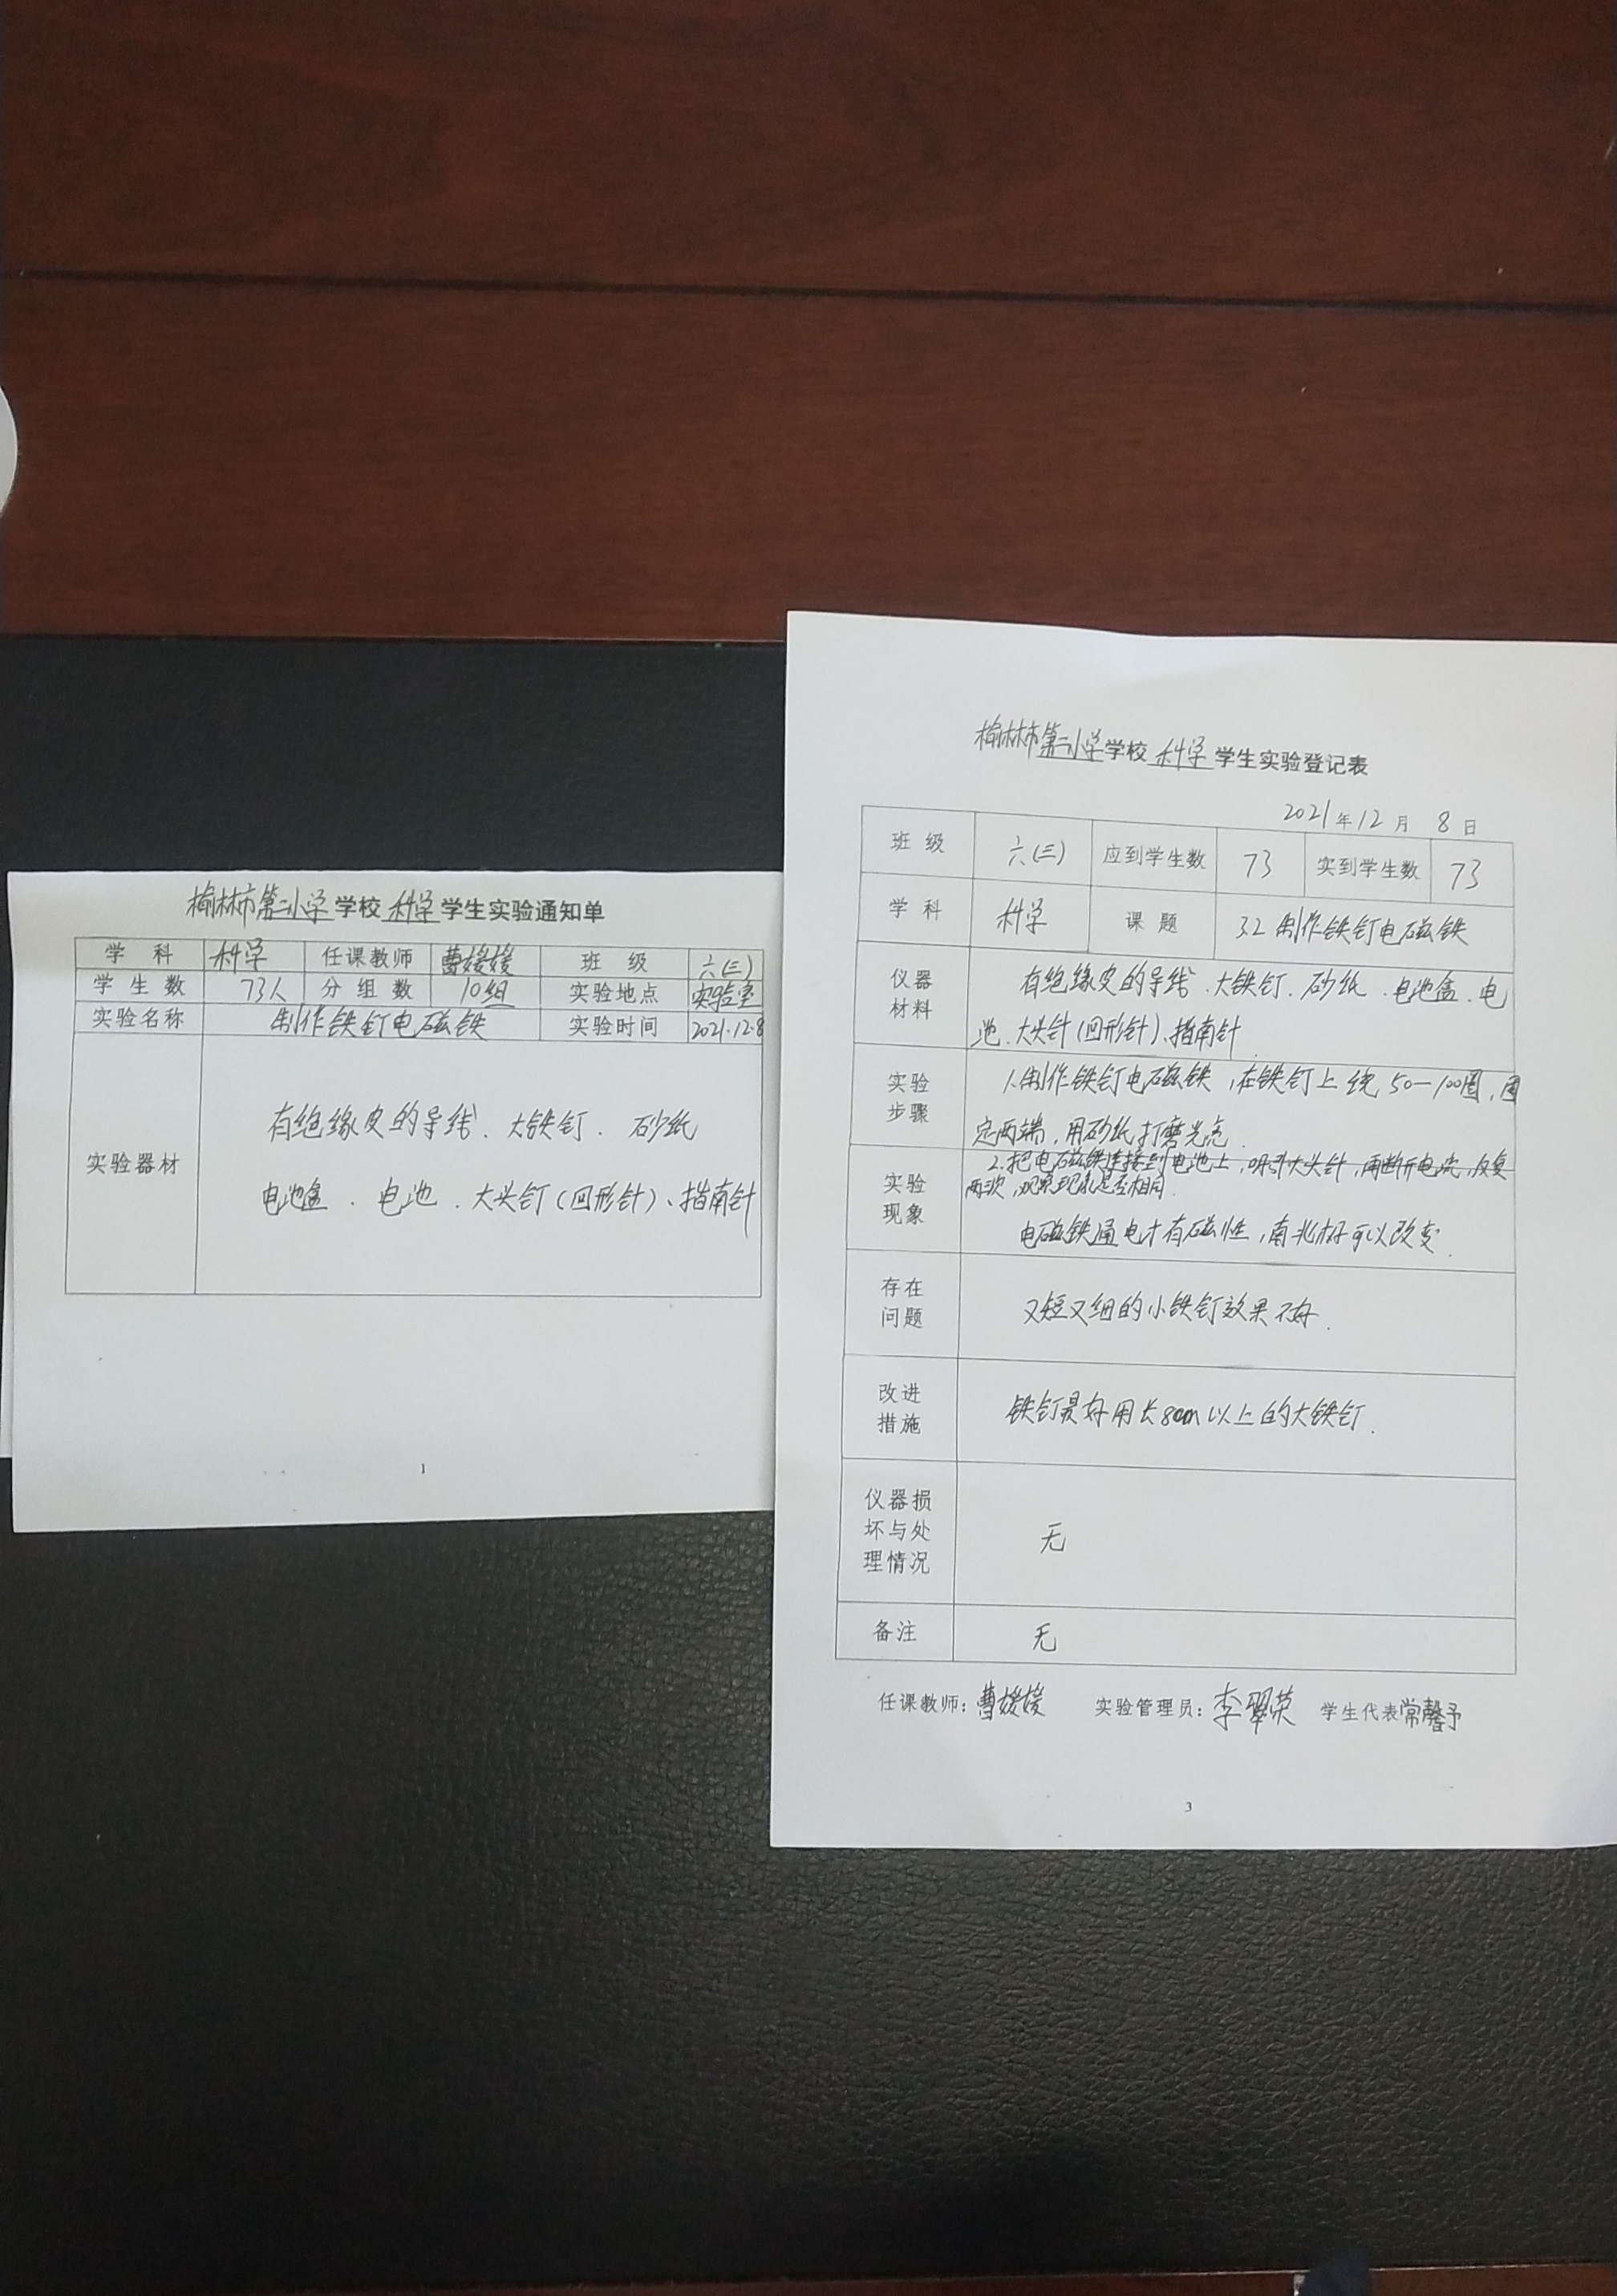 榆林市第二小学学校科学学生实验通知单
学科 科学 任课教师 曹媛媛 班级 六(三)
学生数 73人 分组数 10组 实验地点 实验室
实验名称 制作铁钉电磁铁 实验时间 2021.12.8
实验器材
有绝缘皮的导线、大铁钉、砂纸
电池盒、电池、大头钉(回形针)、指南针
1
榆林市第二小学学校科学学生实验登记表
2021年12月8日
班级 六(三) 应到学生数 73 实到学生数 73
学科 科学 课题 3.2 制作铁钉电磁铁
仪器材料 有绝缘皮的导线、大铁钉、砂纸、电池盒、电
池、大头针(回形针)、指南针
实验步骤 1.制作铁钉电磁铁,在铁钉上绕50—100圈,固
定两端,用砂纸打磨光亮.
2.把电磁铁连接到电池上,吸引大头针,再断开电流,反复
两次,观察现象是否相同.
实验现象 电磁铁通电才有磁性,南北极可以改变.
存在问题 又短又细的小铁钉效果不好.
改进措施 铁钉最好用长8cm以上的大铁钉.
仪器损坏与处理情况 无
备注 无
任课教师:曹媛媛 实验管理员:李翠英 学生代表常馨予
3